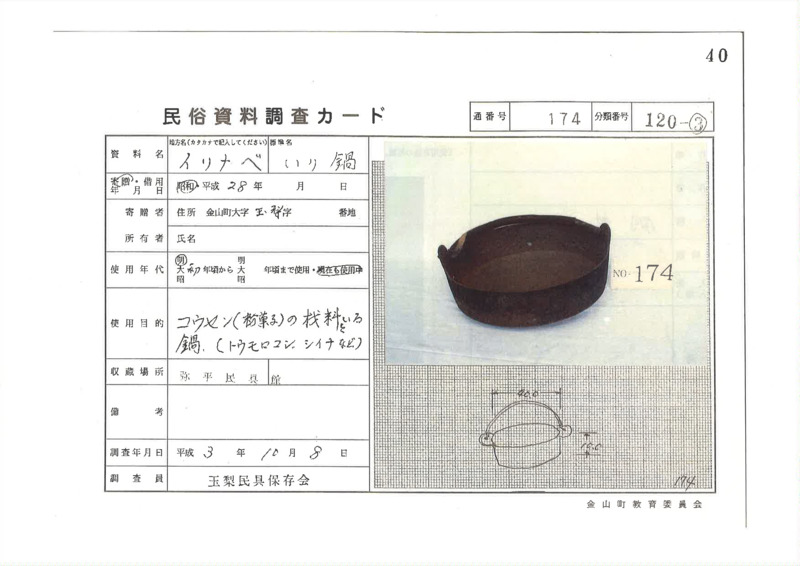 40
民俗資料調査カード
通番号 174 分類番号 120-③
資料名 地方名(カタカナで記入してください) イリナベ 標準名 いり鍋
寄贈・借用年月日 昭和・平成 28年 月 日
寄贈者 住所 金山町大字 玉梨 字 番地
所有者 氏名
使用年代 明大昭 初 年頃から 明大昭 年頃まで使用・現在も使用中
使用目的 コウセン(粉菓子)の材料をいる
鍋、(トウモロコシ、シイナなど)
収蔵場所 弥平民具館
備考
調査年月日 平成 3 年 10 月 8 日
調査員 玉梨民具保存会
NO. 174
40.0
10.0
174
金山町教育委員会